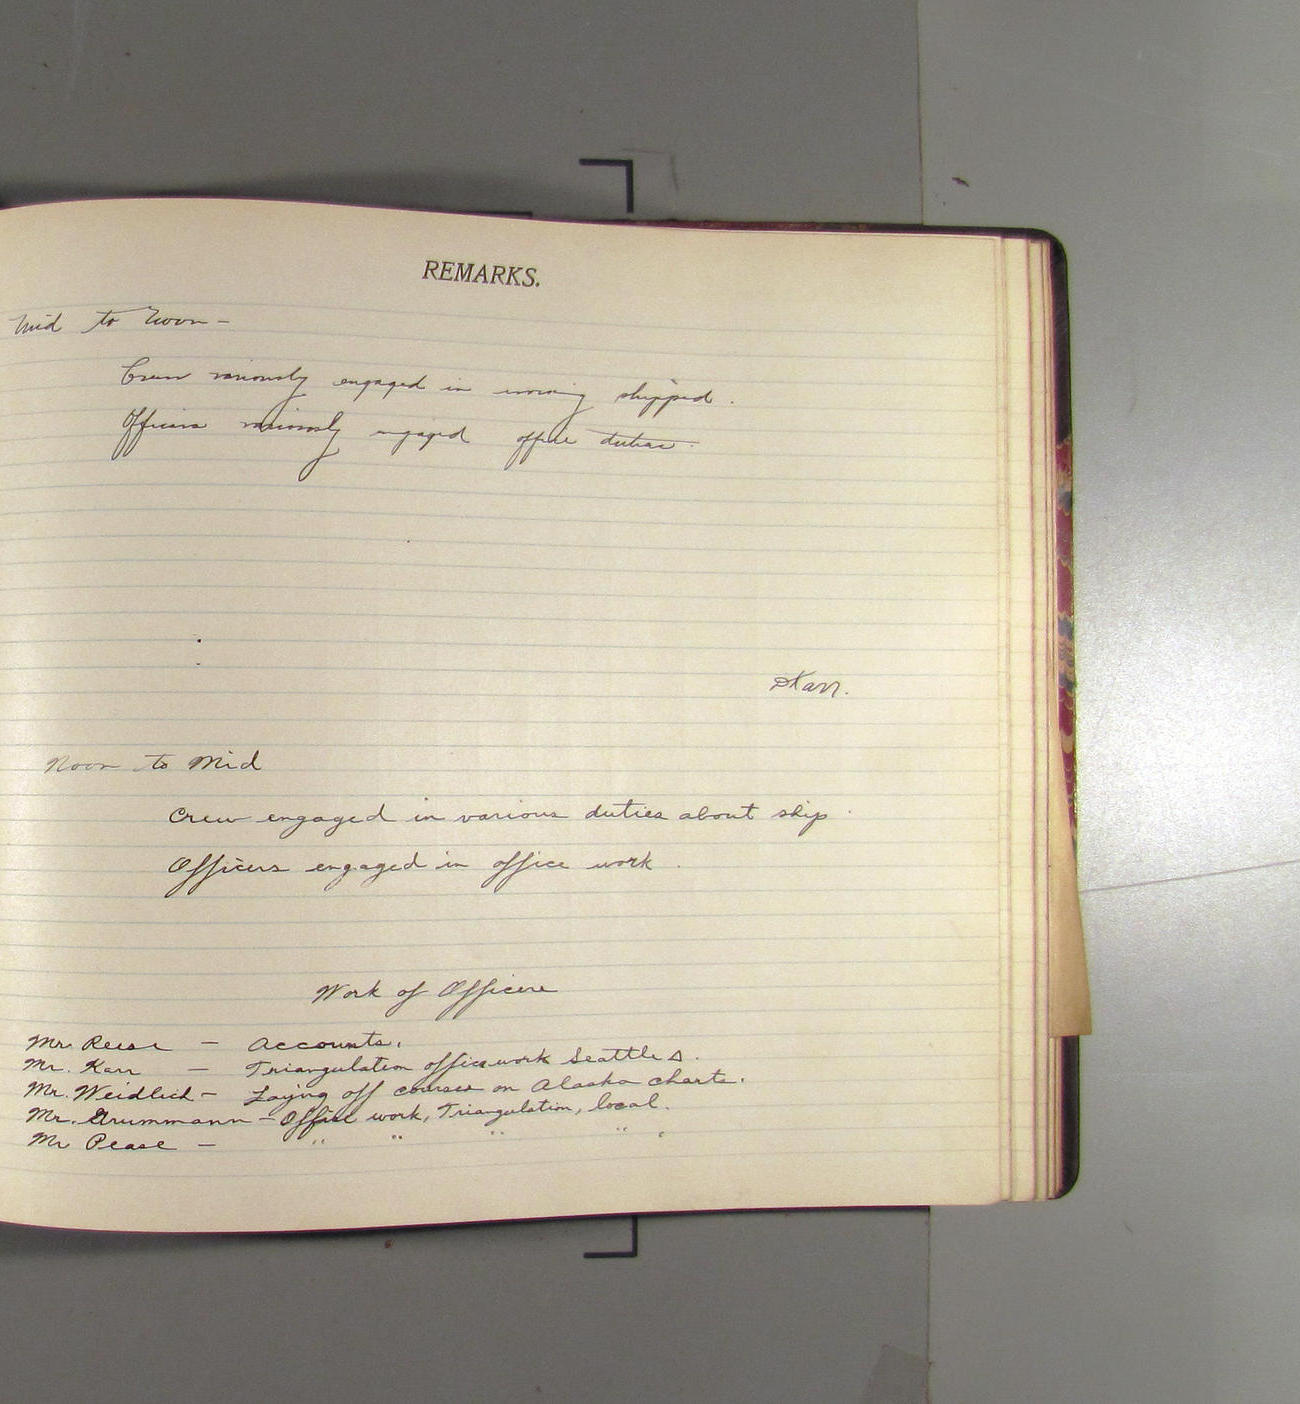 REMARKS.
Mid to Noon -
Crew variously engaged in shipped.
Officers variously engaged office duties.
DKarr.
Noon to Mid
Crew engaged in various duties about ship.
Officers engaged in office work.
Work of Officers
Mr. Reese - Accounts.
Mr. Karr - Triangulation office work Seattle Δ.
Mr. Weidlich - Laying off courses on Alaska charts.
Mr. Grummann - Office work, Triangulation, local.
Mr Pease - " " " " "